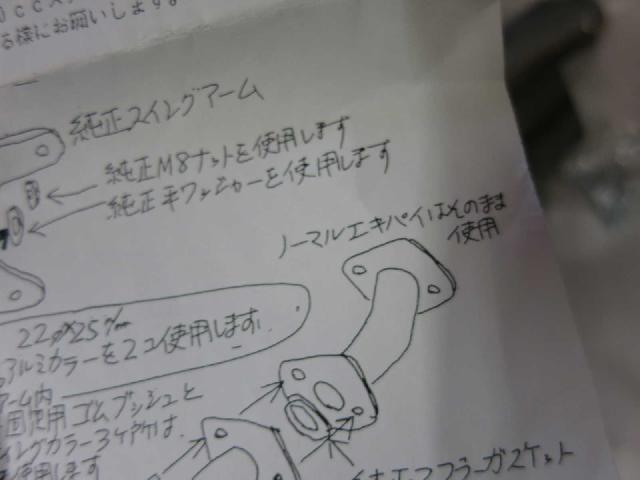 る様にお願いします。
純正スイングアーム
純正M8ナットを使用します
純正平ワッシャーを使用します
ノーマルエキパイはそのまま
使用
アルミカラーを2コ使用します。
アーム内
使用ゴムブッシュと
ングカラー3ケ所は
使用します
マフラーガスケット